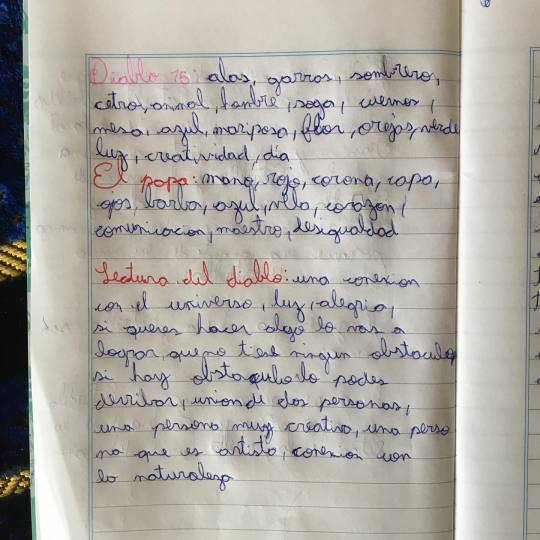 Diablo 15: alas, garras, sombrero,
cetro, animal, hombre, soga, cuernos,
mesa, azul, mariposa, flor, orejas, verde
luz, creatividad, dia
El papa: mano, rojo, corona, capa,
ojos, barba, azul, silla, corazon,
comunicacion, maestro, desigualdad
Lectura del diablo: una conexion
con el universo, luz, alegria,
si queres hacer algo lo vas a
lograr, que no tiene ningun obstaculo
si hay obstaculo lo podes
derribar, union de dos personas,
una persona muy creativa, una perso
na que es artista, conexion con
la naturaleza